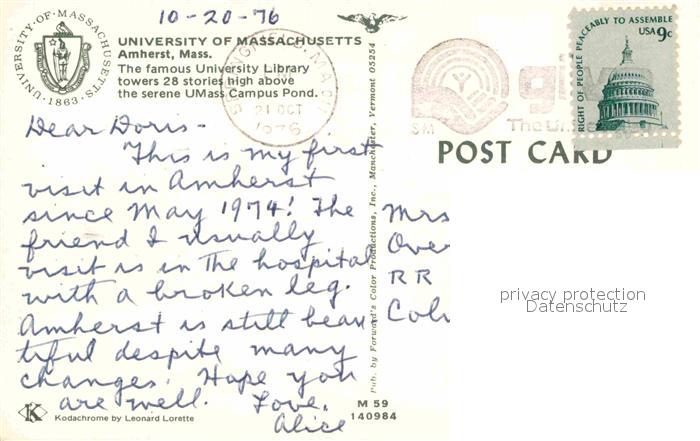 10-20-76
UNIVERSITY·OF·MASSACHUSETTS
·1863·
UNIVERSITY OF MASSACHUSETTS
Amherst, Mass.
The famous University Library
towers 28 stories high above
the serene UMass Campus Pond.
21 OCT
1976
SM
RIGHT OF PEOPLE PEACEABLY TO ASSEMBLE
USA 9c
POST CARD
Dear Doris-
This is my first
visit in Amherst
since May 1974! The
friend I usually
visit is in the hospital
with a broken leg.
Amherst is still beau
tiful despite many
changes. Hope you
are well. Love,
Alice
Pub. by Forward's Color Productions, Inc., Manchester, Vermont 05254
Mrs
Ove
RR
Col
privacy protection
Datenschutz
K
Kodachrome by Leonard Lorette
M 59
140984